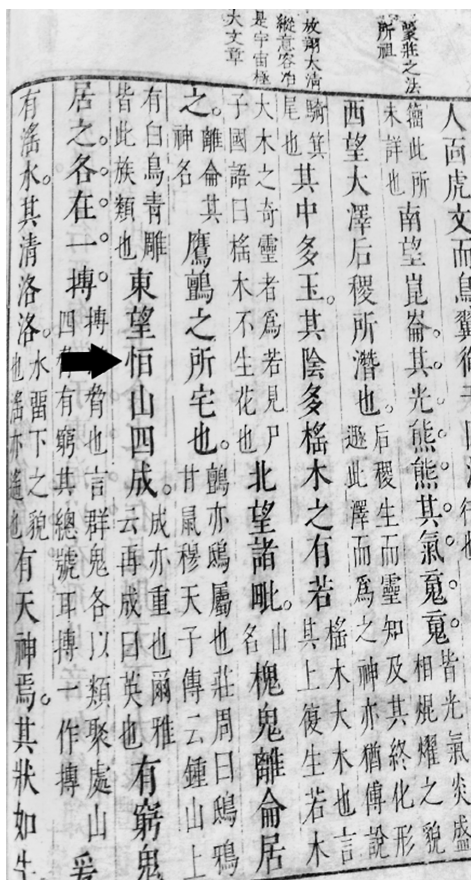 蒙莊之法
所祖
放翔大清
縱意容冶
是宇宙極
大文章
人面虎文而鳥翼
籀此所
未詳也
南望崑崙其光熊熊。其氣䰟䰟。
皆光氣炎盛
相焜燿之貌
西望大澤后稷所潛也。
后稷生而靈知及其終化形
遯此澤而爲之神亦猶傅說
騎箕
尾也
其中多玉。其陰多榣木之有若
榣木大木也言
其上復生若木
大木之奇靈者爲若見尸
子國語曰榣木不生花也
北望諸毗。
山
名
槐鬼離侖居
之。
離侖其
神名
鷹鸇之所宅也。
鸇亦鴟屬也莊周曰鴟鴉
甘鼠穆天子傳云鍾山上
有白鳥青雕
皆此族類也
東望恒山四成。
成亦重也爾雅
云再成曰英也
有窮鬼
居之。各在一搏。
搏脅也言群鬼各以類聚處山
四有窮其總號耳搏一作摶
爰
有滛水。其清洛洛。
水畱下之貌
也滛亦遙也
有天神焉。其狀如牛